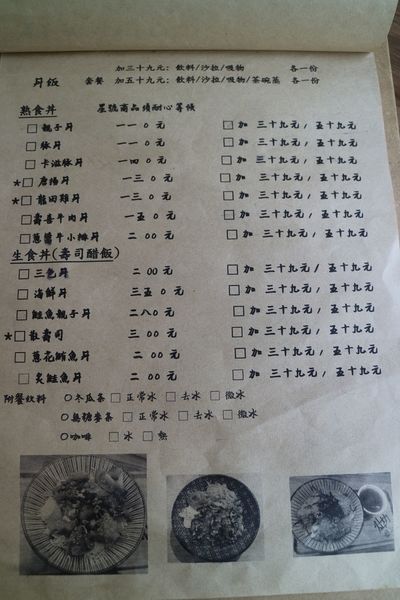 加三十九元: 飲料/沙拉/吸物 各一份
丼飯 套餐 加五十九元: 飲料/沙拉/吸物/茶碗蒸 各一份
熟食丼 星號商品須耐心等候
□ 親子丼 一一0元 □ 加 三十九元, 五十九元
□ 豚丼 一一0元 □ 加 三十九元, 五十九元
□ 卡滋豚丼 一四0元 □ 加 三十九元, 五十九元
*□ 唐揚丼 一三0元 □ 加 三十九元, 五十九元
*□ 龍田雞丼 一三0元 □ 加 三十九元, 五十九元
□ 壽喜牛肉丼 一五0元 □ 加 三十九元, 五十九元
□ 蔥醬牛小排丼 二00元 □ 加 三十九元, 五十九元
生食丼(壽司醋飯)
□ 三色丼 二00元 □ 加 三十九元/ 五十九元
□ 海鮮丼 三五0元 □ 加 三十九元/ 五十九元
□ 鮭魚親子丼 二八0元 □ 加 三十九元/ 五十九元
*□ 散壽司 三00元 □ 加 三十九元/ 五十九元
□ 蔥花鮪魚丼 二00元 □ 加 三十九元/ 五十九元
□ 炙鮭魚丼 二00元 □ 加 三十九元, 五十九元
附餐飲料 ○冬瓜茶 □ 正常冰 □ 去冰 □ 微冰
○無糖麥茶 □ 正常冰 □ 去冰 □ 微冰
○咖啡 □ 冰 □ 熱